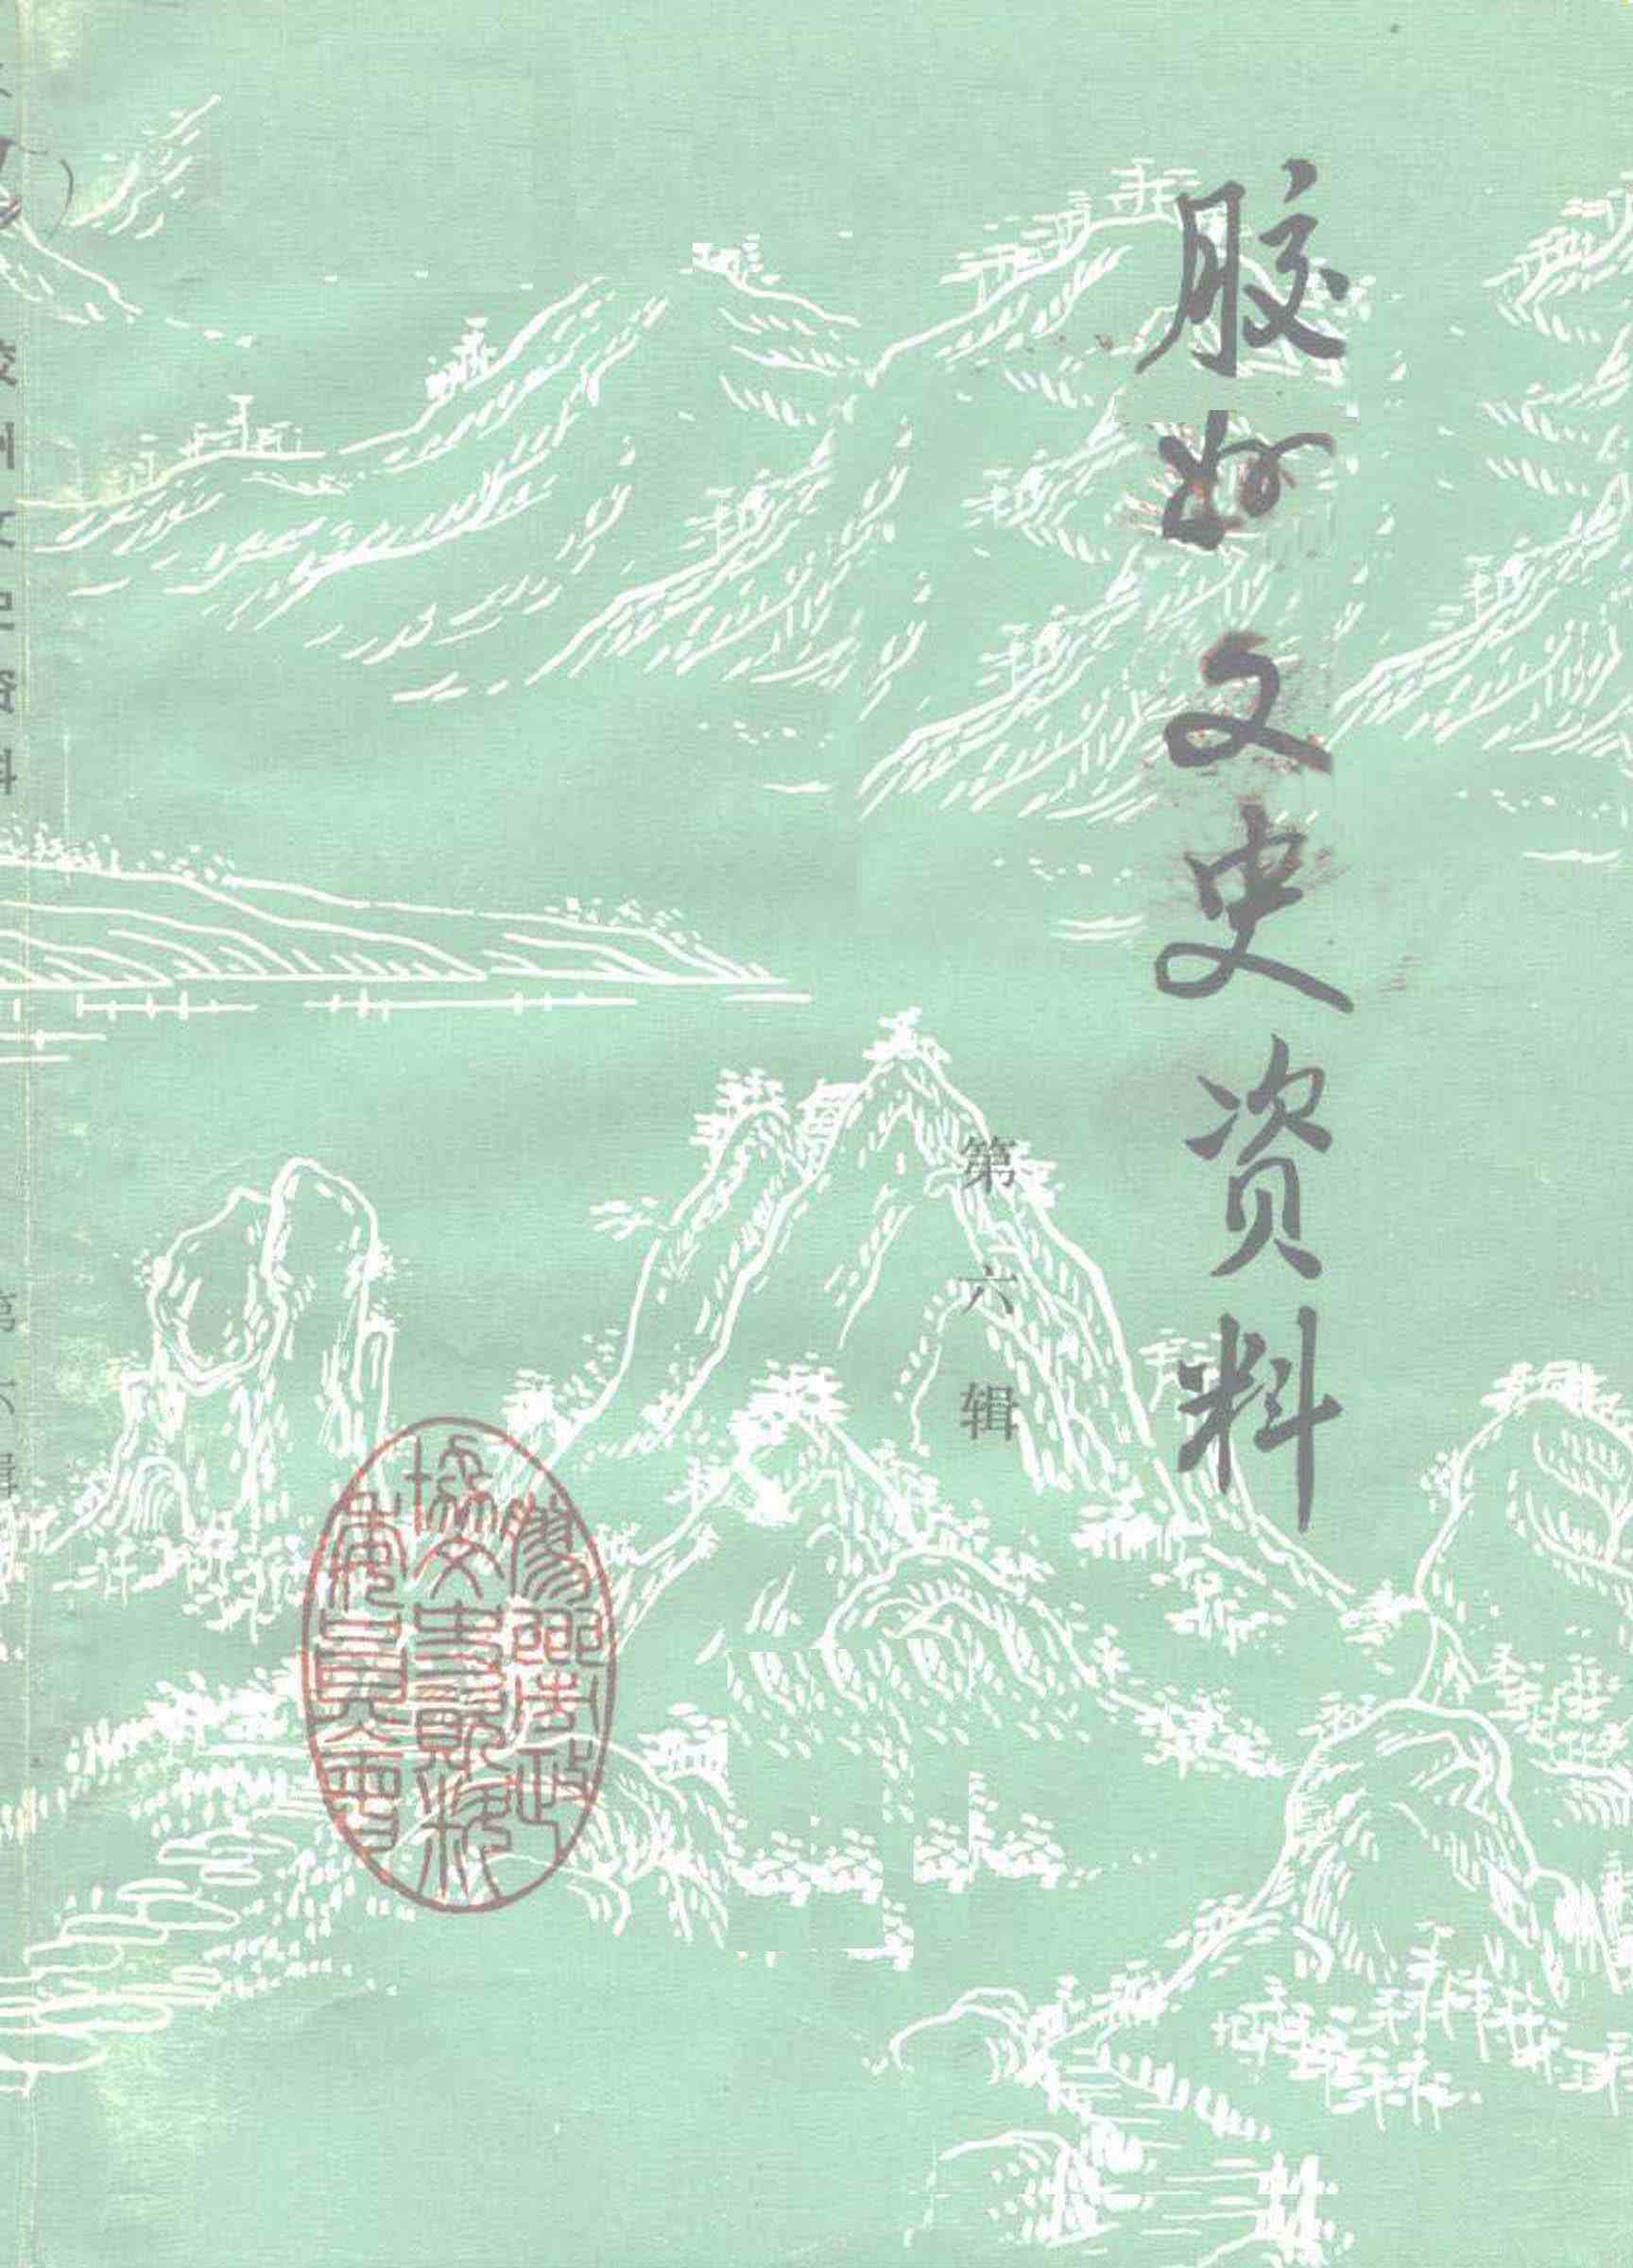 胶州文史资料
第六辑
膠州市政
協文史資料
委員會
胶州文史资料 第六辑